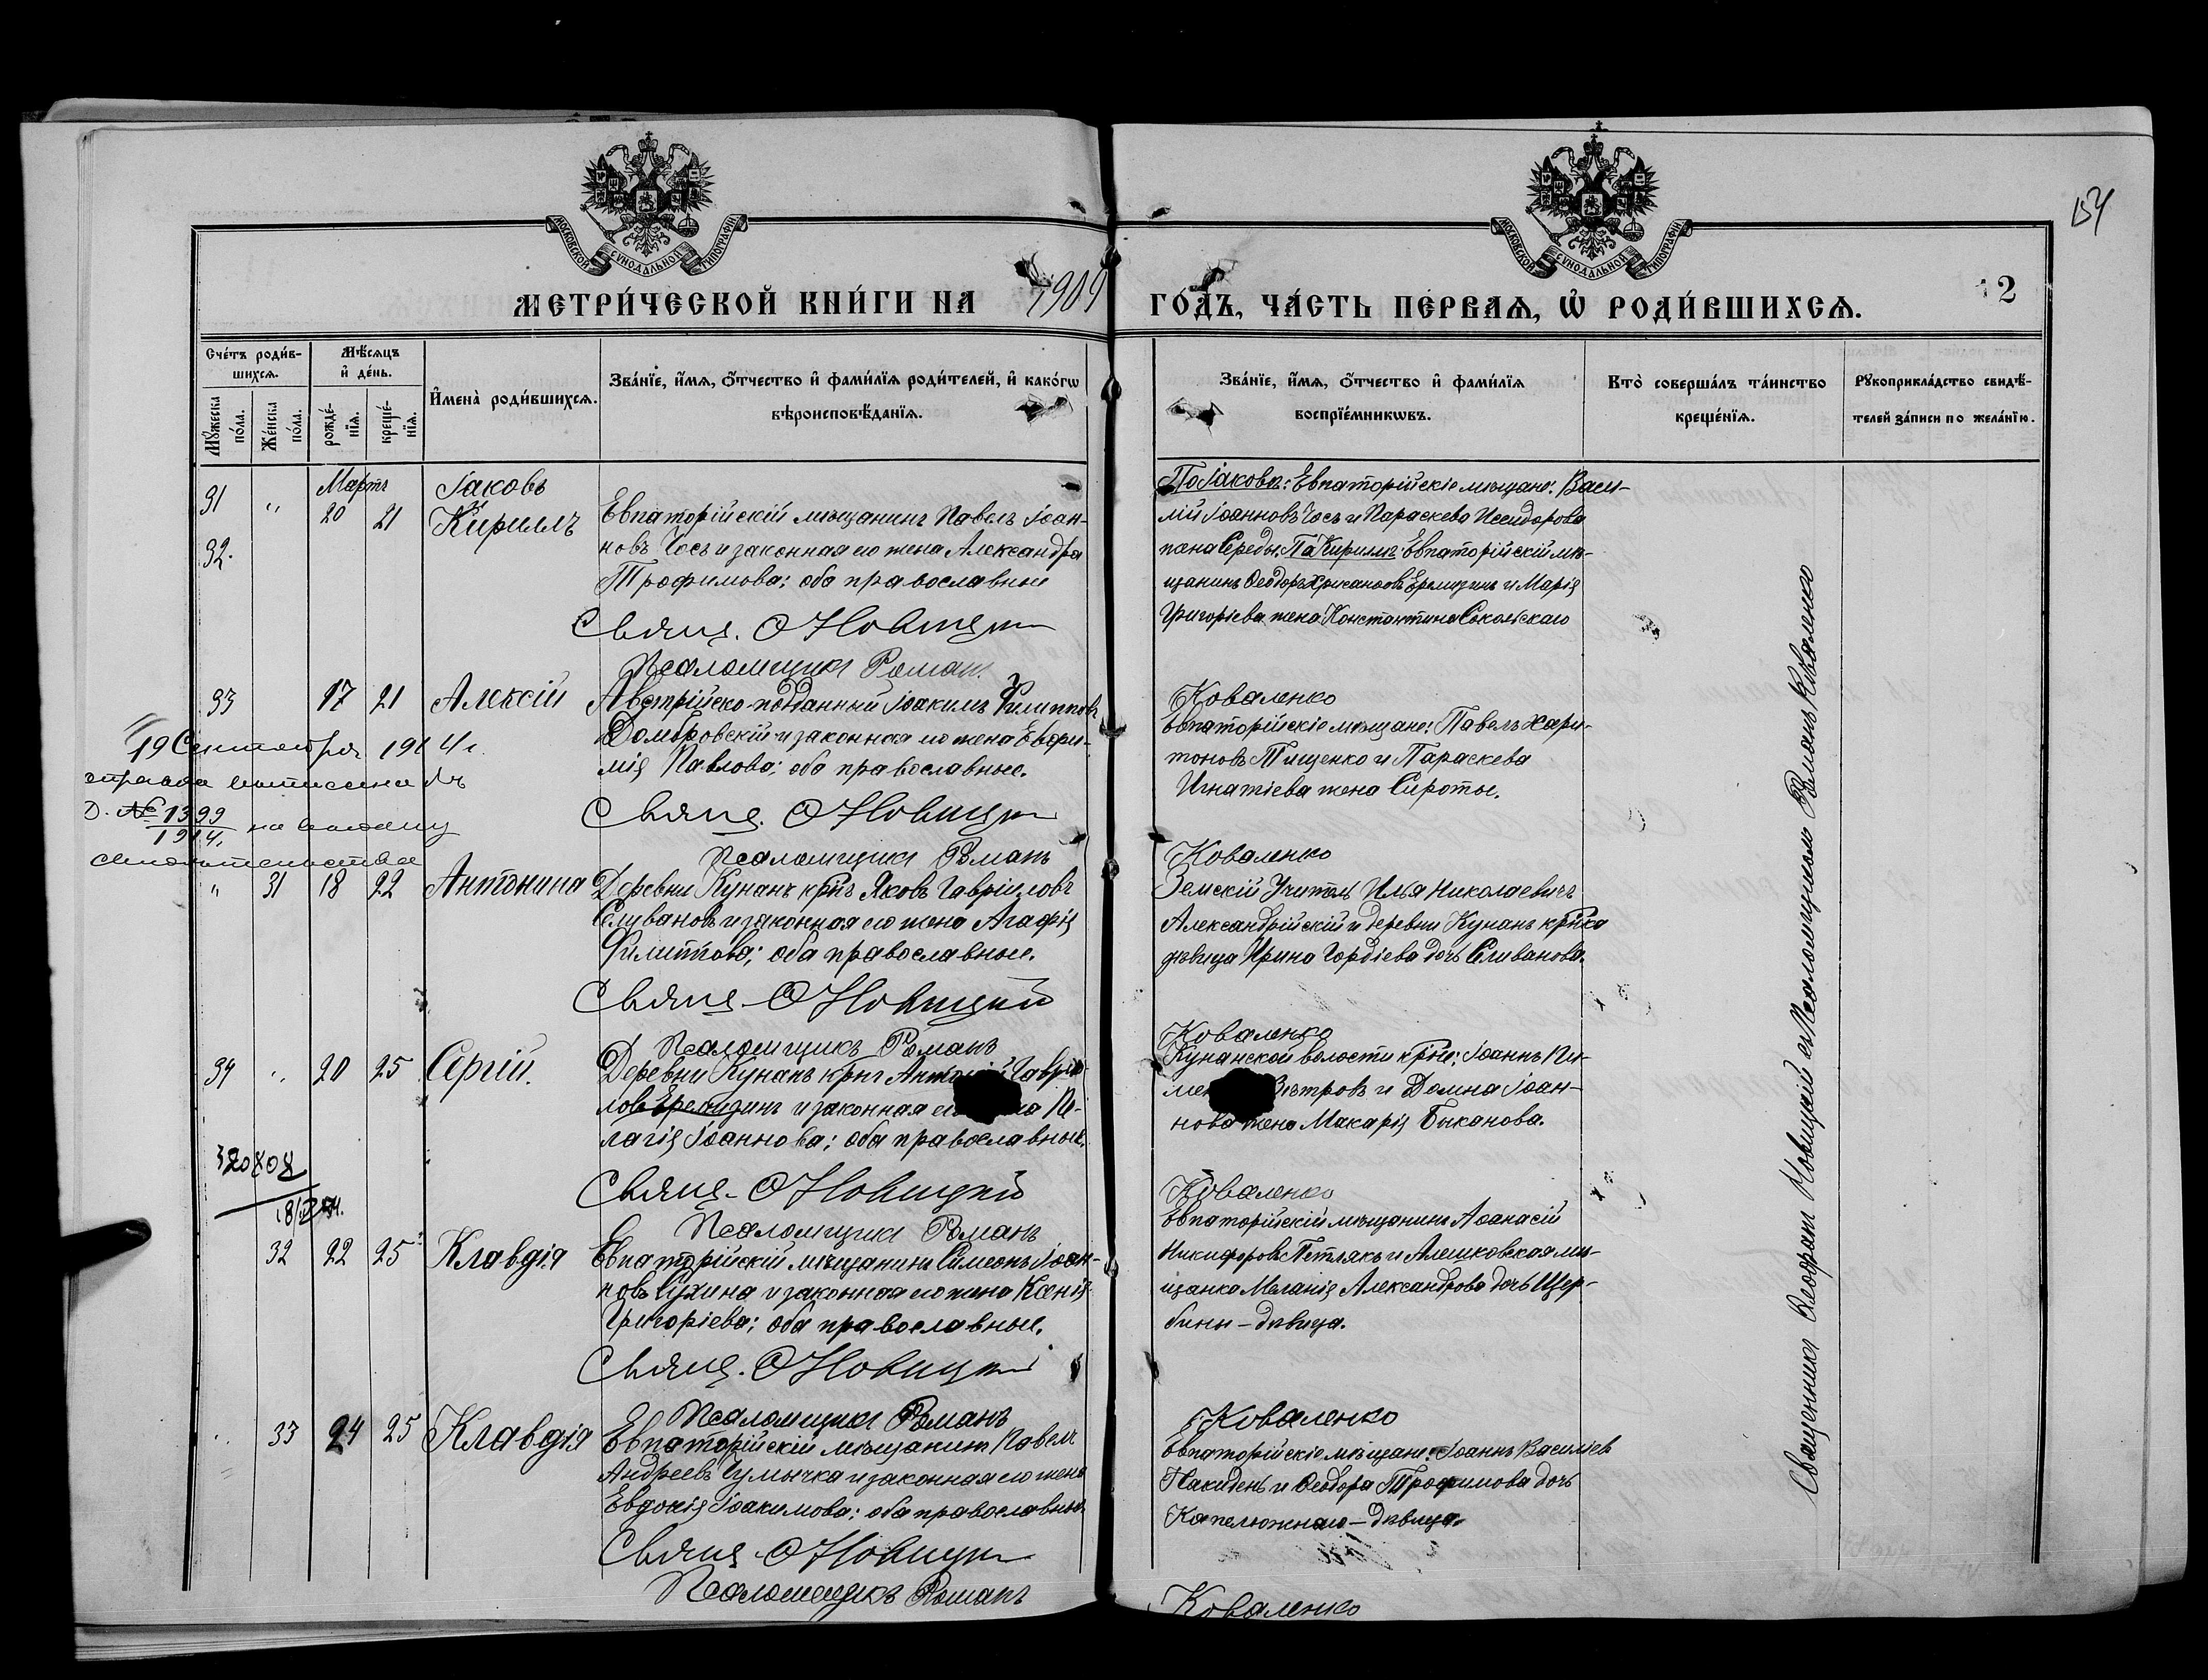 154
МОСКОВСКОЙ СѴНОДАЛЬНОЙ ТИПОГРАФІИ
МОСКОВСКОЙ СѴНОДАЛЬНОЙ ТИПОГРАФІИ
МЕТРИ́ЧЕСКОЙ КНИ́ГИ НА 1909 ГО́ДЪ, ЧА́СТЬ ПЕ́РВАѦ, Ѡ҆ РОДИ́ВШИХСѦ.
2
Сче́тъ роди́в-
шихсѧ.
Мꙋ́жеска по́ла.
Же́нска по́ла.
Мѣ́сѧцъ
и҆ де́нь.
рожде́-
нїѧ.
креще́-
нїѧ.
И҆мена̀ роди́вшихсѧ.
Зва́нїе, и҆́мѧ, ѻ҆́тчество и҆ фами́лїѧ роди́телей, и҆ како́гѡ
вѣроисповѣ́данїѧ.
Зва́нїе, и҆́мѧ, ѻ҆́тчество и҆ фами́лїѧ
воспрїе́мникѡвъ.
Кто̀ соверша́лъ та́инство
креще́нїѧ.
Рꙋкоприкла́дство свидѣ́-
телей за́писи по жела́нїю.
Мартъ
31 " 20 21
32.
Іаковъ
Кириллъ
Евпаторійскій мѣщанинъ Павелъ Іоан-
новъ Чосъ и законная его жена Александра
Трофимова; оба православные
Свящ. Ѳ Новицкій
Псаломщикъ Романъ
По Іаковѣ: Евпаторійскіе мѣщане: Васи-
лій Іоанновъ Чосъ и Параскева Исидорова
жена Середы. По Кириллѣ: Евпаторійскій мѣ-
щанинъ Ѳеодоръ Еремизинъ и Марія
Григоріева жена Константина Сокольскаго
Коваленко
33 17 21 Алексій
Австрійско-подданный Іоакимъ Филипповъ
Домбровскій и законная его жена Евфи-
мія Павлова; оба православные.
Свящ. Ѳ Новицкій
Псаломщикъ Романъ
Евпаторійскіе мѣщане: Павелъ Хари-
тоновъ Тищенко и Параскева
Игнатіева жена Сироты.
Коваленко
19 Сентября 1914 г.
справка выписана въ
д. № 1399
1914. на выдачу
свидѣтельства
" 31 18 22 Антонина
Деревни Кунанъ крнъ Яковъ Гавріиловъ
Селивановъ и законная его жена Агафія
Филиппова; оба православные.
Свящ. Ѳ Новицкій
Псаломщикъ Романъ
Земскій Учитель Илья Николаевичъ
Александрійскій и деревни Кунанъ крнка
дѣвица Ирина Гордіева дочь Селиванова.
Коваленко
34 " 20 25 Сергій.
Деревни Кунанъ крнъ Антоній Гаврі-
ловъ Еремизинъ и законная его жена Пе-
лагія Іоаннова; оба православные.
Свящ. Ѳ Новицкій
Псаломщикъ Романъ
Кунанской волости крне: Іоаннъ Пи-
мен Вѣтровъ и Домна Іоан-
нова жена Макарія Быканова.
Коваленко
32 22 25 Клавдія
Евпаторійскій мѣщанинъ Симеонъ Іоан-
новъ Сухина и законная его жена Ксенія
Григоріева; оба православные.
Свящ. Ѳ Новицкій
Псаломщикъ Романъ
Евпаторійскій мѣщанинъ Аѳанасій
Никифоровъ Петлякъ и Алешковская мѣ-
щанка Меланія Александрова дочь Щер-
бины – дѣвица.
Коваленко
" 33 24 25 Клавдія
Евпаторійскій мѣщанинъ Павелъ
Андреевъ Чумычка и законная его жена
Евдокія Іоакимова; оба православные
Свящ. Ѳ Новицкій
Псаломщикъ Романъ
Евпаторійскіе мѣщане: Іоаннъ Василіевъ
Накиденъ и Ѳеодора Трофимова дочь
Капелюжнаго – дѣвица.
Коваленко
Священникъ Ѳеофанъ Новицкій съ Псаломщикомъ Романъ Коваленко